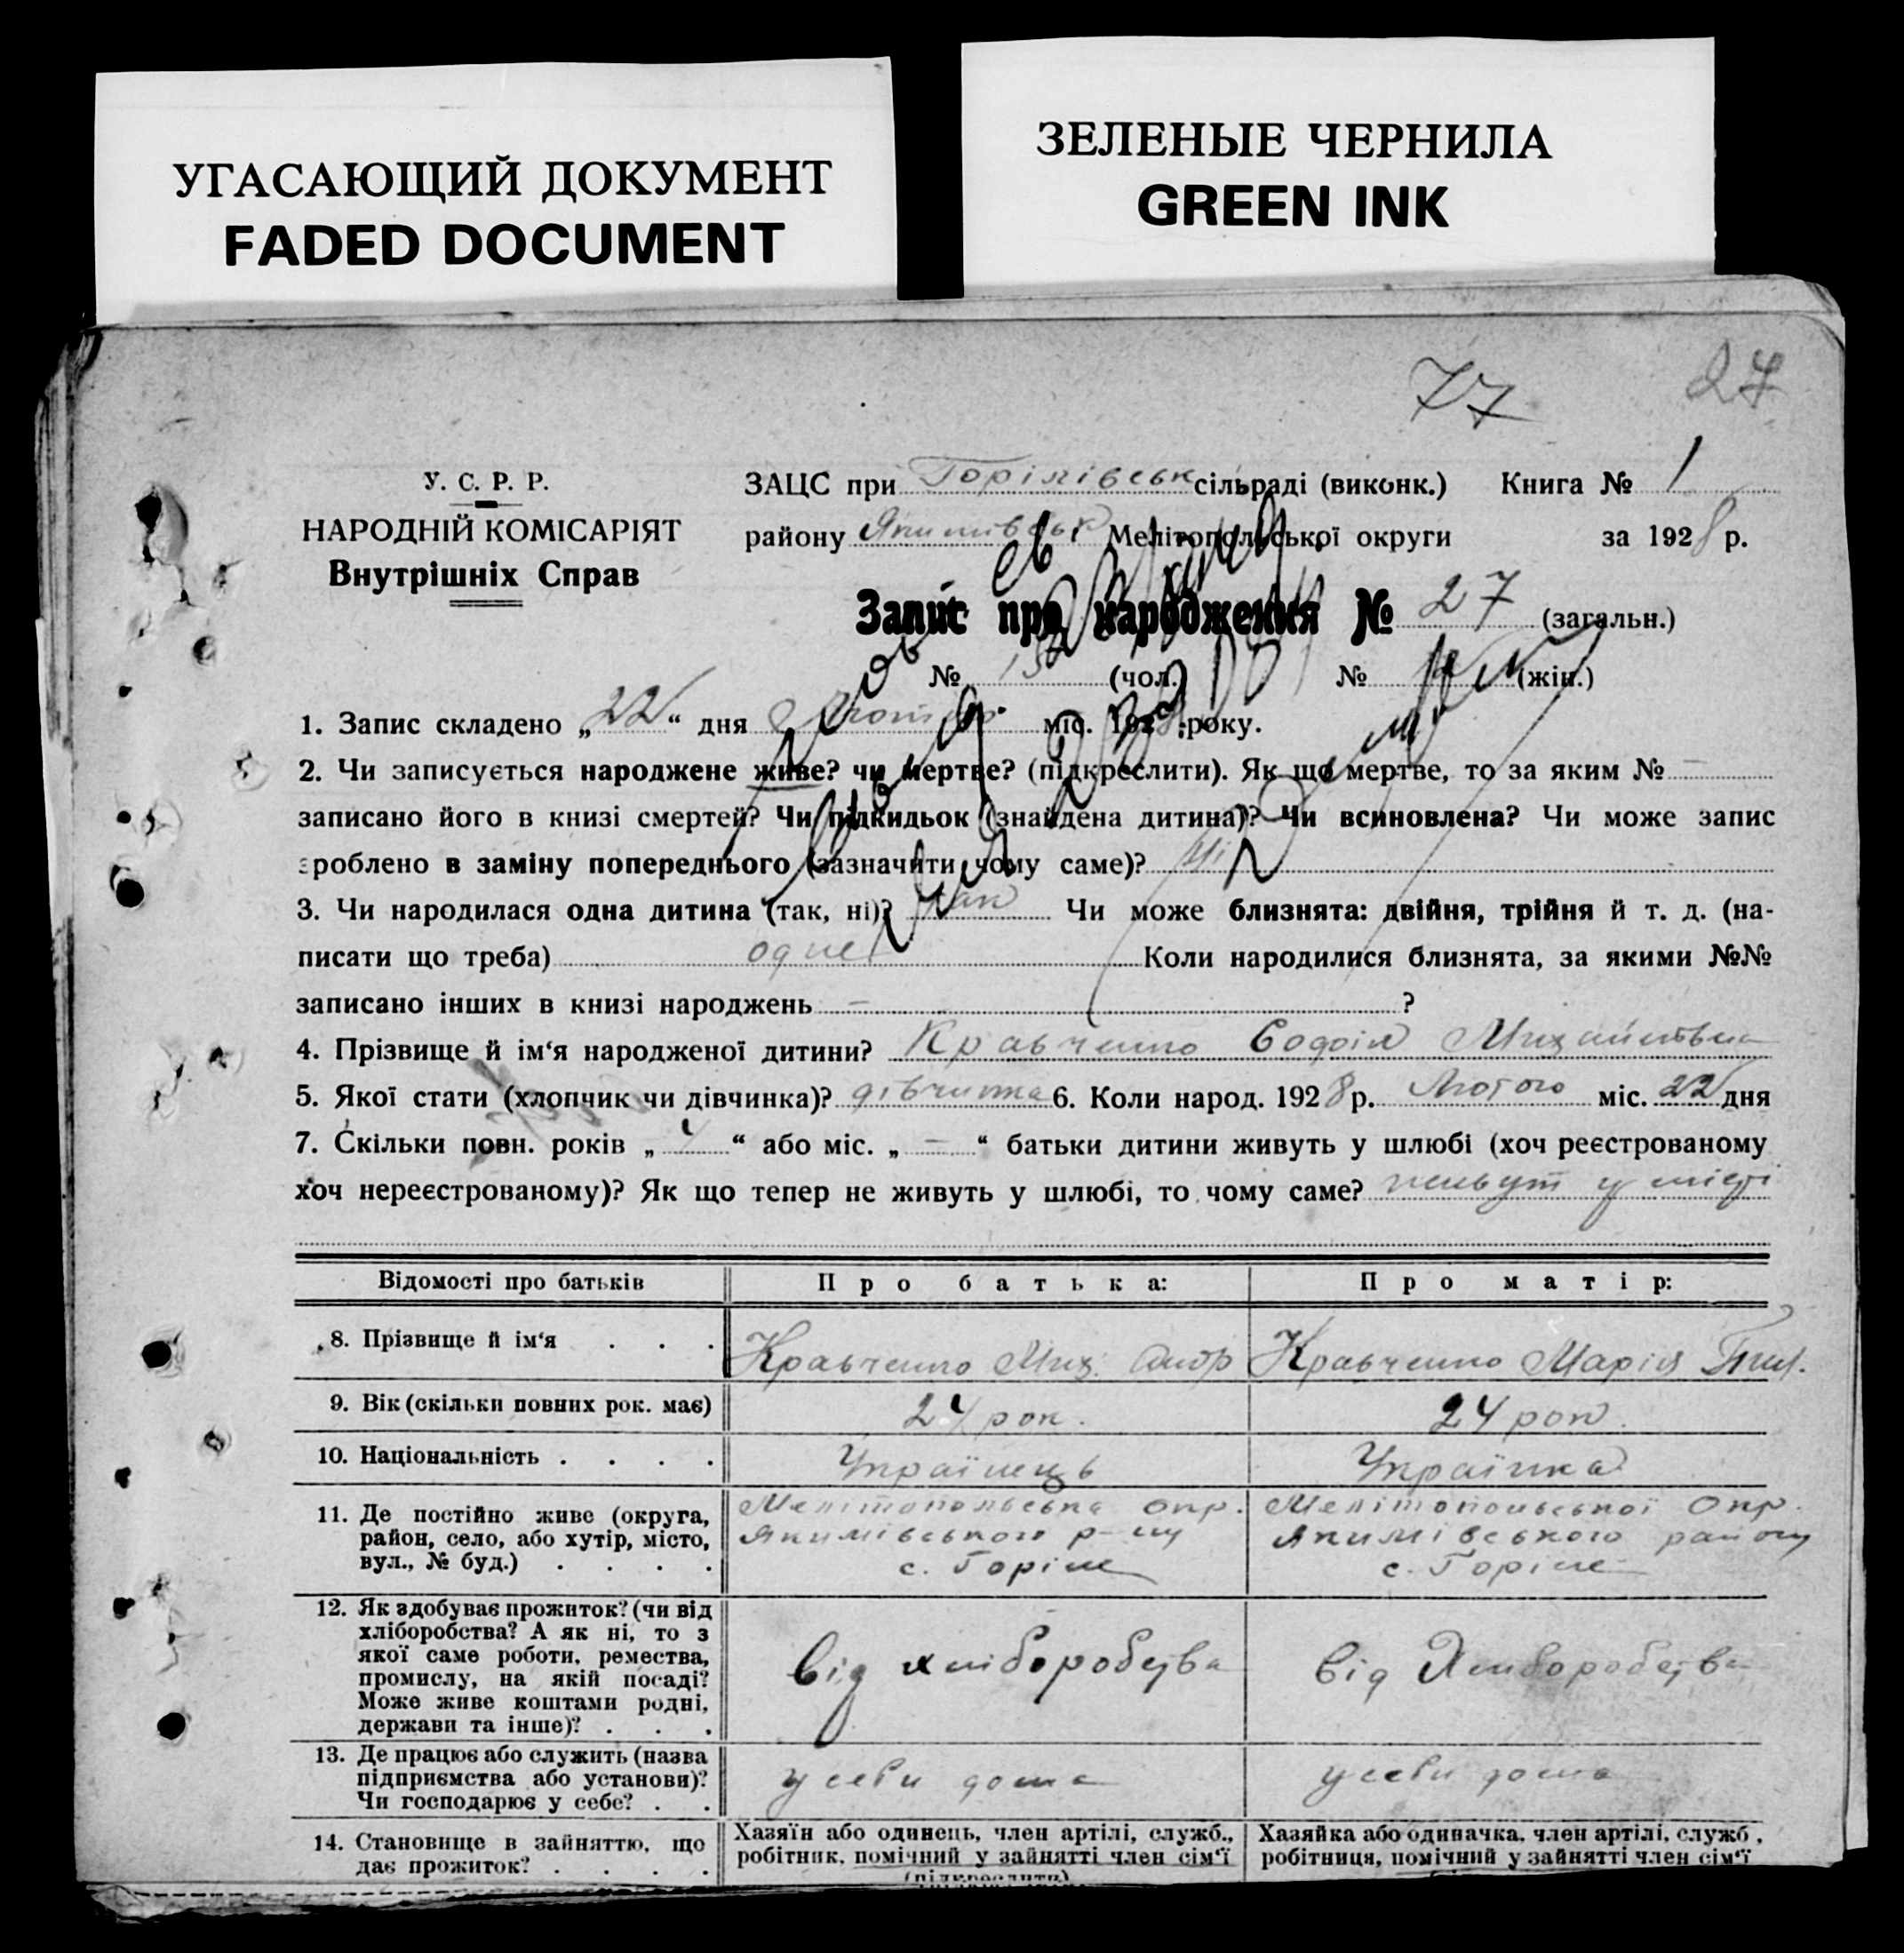 УГАСАЮЩИЙ ДОКУМЕНТ
FADED DOCUMENT
ЗЕЛЕНЫЕ ЧЕРНИЛА
GREEN INK
77
27
У. С. Р. Р.
НАРОДНІЙ КОМІСАРІЯТ
Внутрішніх Справ
ЗАЦС при Горілівськ сільраді (виконк.) Книга № 1
району Якимівськ Мелітопольської округи за 1928 р.
Запис про народження № 27 (загальн.)
№ 13 (чол.) № (жін.)
1. Запис складено „22“ дня Лютого міс. 1928 року.
2. Чи записується народжене живе? чи мертве? (підкреслити). Як що мертве, то за яким № —
записано його в книзі смертей? Чи підкидьок (знайдена дитина)? Чи всиновлена? Чи може запис
зроблено в заміну попереднього (зазначити чому саме)? Ні
3. Чи народилася одна дитина (так, ні)? так Чи може близнята: двійня, трійня й т. д. (на-
писати що треба) одне Коли народилися близнята, за якими №№
записано інших в книзі народжень — ?
4. Прізвище й ім‘я народженої дитини? Кравченко Софія Михайловна
5. Якої стати (хлопчик чи дівчинка)? дівчинка 6. Коли народ. 1928 р. Лютого міс. 22 дня
7. Скільки повн. років „4“ або міс. „—“ батьки дитини живуть у шлюбі (хоч реєстрованому
хоч нереєстрованому)? Як що тепер не живуть у шлюбі, то чому саме? живут у
Відомості про батьків
Про батька:
Про матір:
8. Прізвище й ім‘я . . .
Кравченко Мих. Андр
Кравченко Марія
9. Вік (скільки повних рок. має)
24 рок.
24 рок.
10. Національність . . . .
Українець
Українка
11. Де постійно живе (округа,
район, село, або хутір, місто,
вул., № буд.) . . . .
Мелітопольська Окр.
Якимівського р-ну
с. Горіле
Мелітопольської Окр.
Якимівського району
с. Горіле
12. Як здобуває прожиток? (чи від
хліборобства? А як ні, то з
якої саме роботи, ремества,
промислу, на якій посаді?
Може живе коштами родні,
держави та інше)? . . .
від хліборобства
від Хліборобства
13. Де працює або служить (назва
підприємства або установи)?
Чи господарює у себе? . .
у себи дома
у себи дома
14. Становище в зайняттю, що
дає прожиток? . . . .
Хазяїн або одинець, член артілі, служб.,
робітник, помічний у зайнятті член сім‘ї
(підкреслити)
Хазяйка або одиначка, член артілі, служб.,
робітниця, помічний у зайнятті член сім‘ї